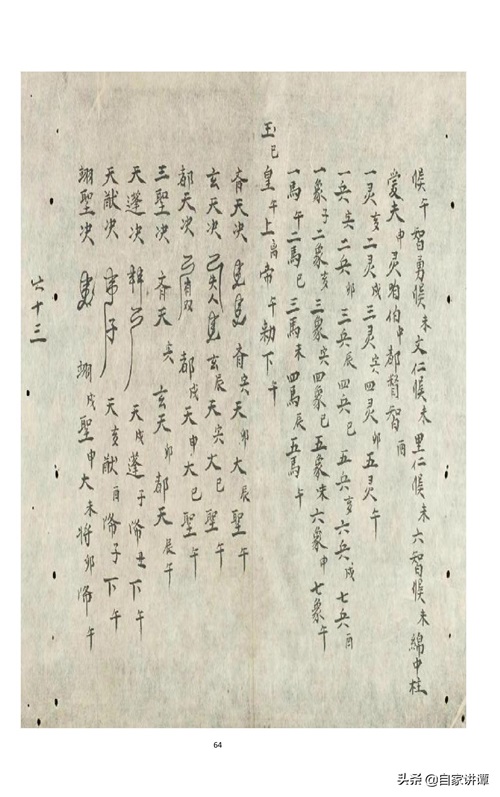 候午 智勇候未 文仁候未 里仁候未 六智候未 綿中柱
爱夫申灵 伯中都督智酉
一灵亥二灵戌三灵寅四灵卯五灵午
一兵寅二兵卯三兵辰四兵巳五兵亥六兵戌七兵酉
一象子二象亥三象寅四象巳五象未六象中七象午
一馬午二馬巳三馬未四馬辰五馬午
玉巳皇午上离帝午勅下午
斉天决 斉寅天卯大辰聖午
玄天决 玄辰天寅大巳聖午
都天决 都戌天申大巳聖午
三聖决 斉天寅 玄天卯 都天辰午
天蓬决 天戌蓬子 下午
天猷决 天亥猷酉 子下午
翊聖决 翊戌聖申大未将卯 午
六十三
64
头条@自家讲谭